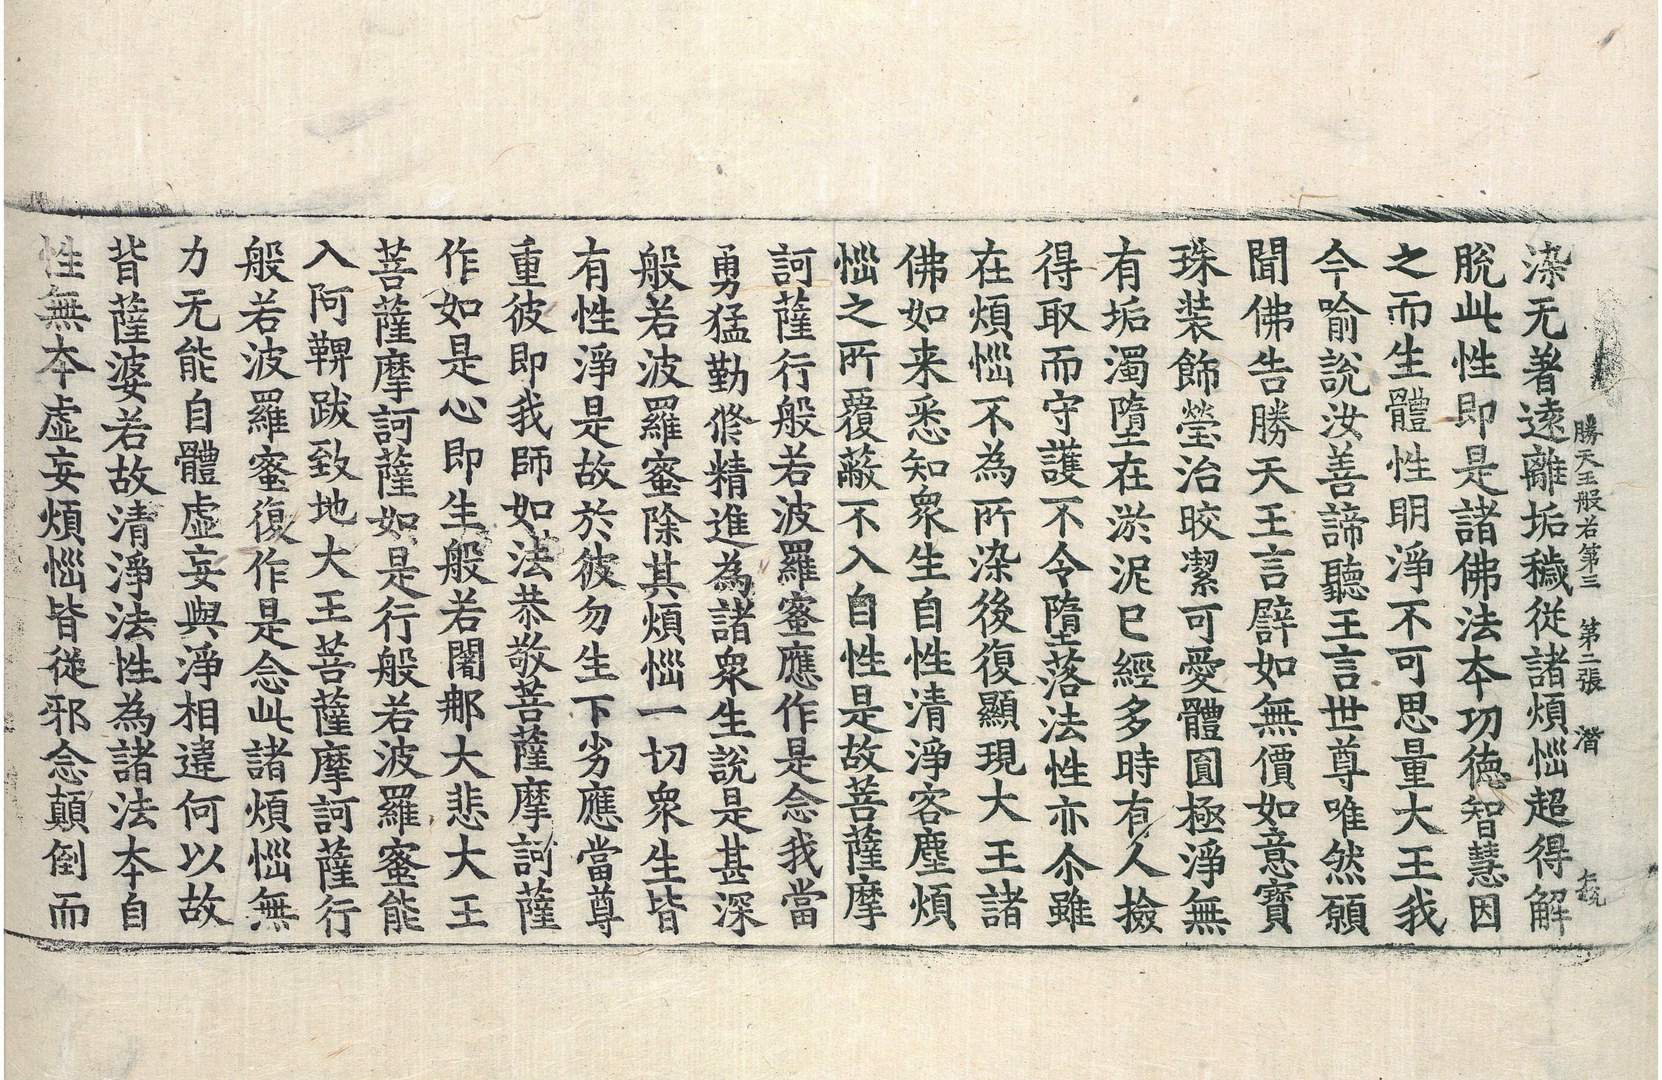 勝天王般若第三　第二張　潛
染无著遠離垢穢従諸煩惱超得解
脫此性即是諸佛法夲功德智慧因
之而生體性明淨不可思量大王我
今喻說汝善諦聽王言世尊唯然願
聞佛告勝天王言譬如無價如意寶
珠装飾瑩治皎潔可愛體圓極淨無
有垢濁墮在淤泥已經多時有人撿
得取而守護不令墮落法性亦尒雖
在煩惱不為所染後復顯現大王諸
佛如来悉知衆生自性清淨客塵煩
惱之所覆蔽不入自性是故菩薩摩
訶薩行般若波羅蜜應作是念我當
勇猛勤修精進為諸衆生說是甚深
般若波羅蜜除其煩惱一切衆生皆
有性淨是故於彼勿生下劣應當尊
重彼即我師如法恭敬菩薩摩訶薩
作如是心即生般若闍那大悲大王
菩薩摩訶薩如是行般若波羅蜜能
入阿鞞跋致地大王菩薩摩訶薩行
般若波羅蜜復作是念此諸煩惱無
力无能自體虛妄與淨相違何以故
背薩婆若故清淨法性為諸法夲自
性無夲虛妄煩惱皆從邪念顛倒而